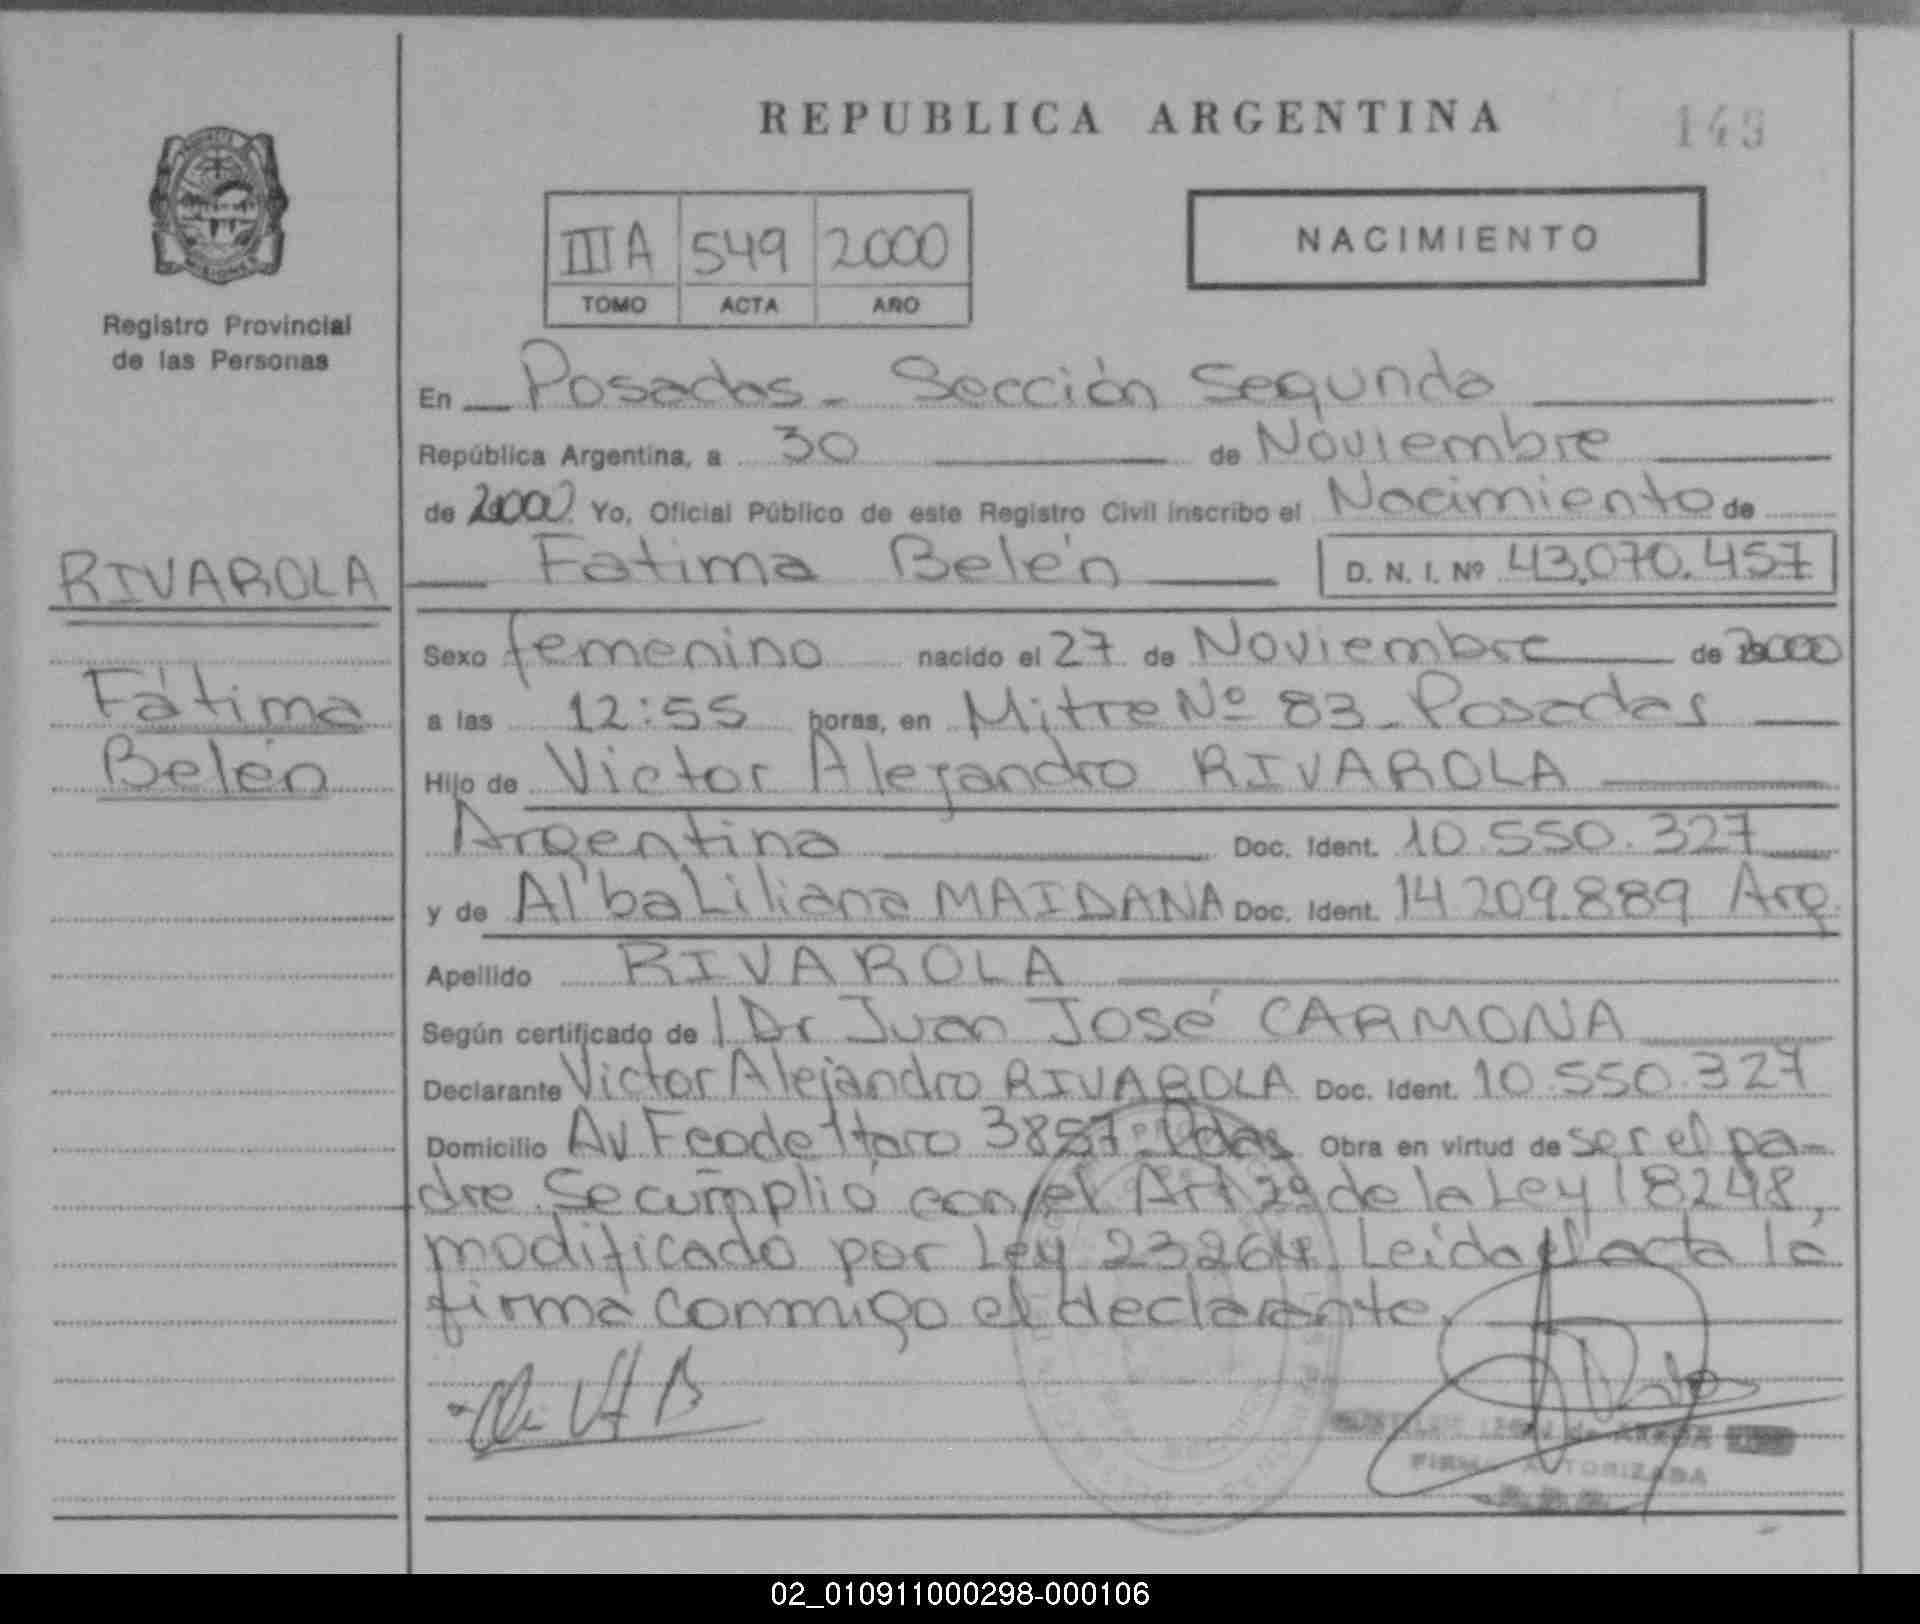 REPUBLICA ARGENTINA
149
III A 549 2000
TOMO ACTA AÑO
NACIMIENTO
Registro Provincial
de las Personas
En Posadas - Sección Segunda
República Argentina, a 30 de Noviembre
de 2000 Yo, Oficial Público de este Registro Civil inscribo el Nacimiento de
RIVAROLA
Fatima Belén D. N. I. Nº 43.070.457
Sexo femenino nacido el 27 de Noviembre de 2000
Fátima
a las 12:55 horas, en Mitre Nº 83 - Posadas
Belén
Hijo de Victor Alejandro RIVAROLA
Argentina Doc. Ident. 10.550.327
y de Alba Liliana MAIDANA Doc. Ident. 14.209.889 Arg.
Apellido RIVAROLA
Según certificado de Dr Juan José CARMONA
Declarante Victor Alejandro RIVAROLA Doc. Ident. 10.550.327
Domicilio Av 3857 - Pdas Obra en virtud de ser el pa-
dre. Se cumplió con el Art 2º de la Ley 18248,
modificado por Ley 23264. Leida el acta la
firma conmigo el declarante.
FIRMA AUTORIZADA
02_010911000298-000106